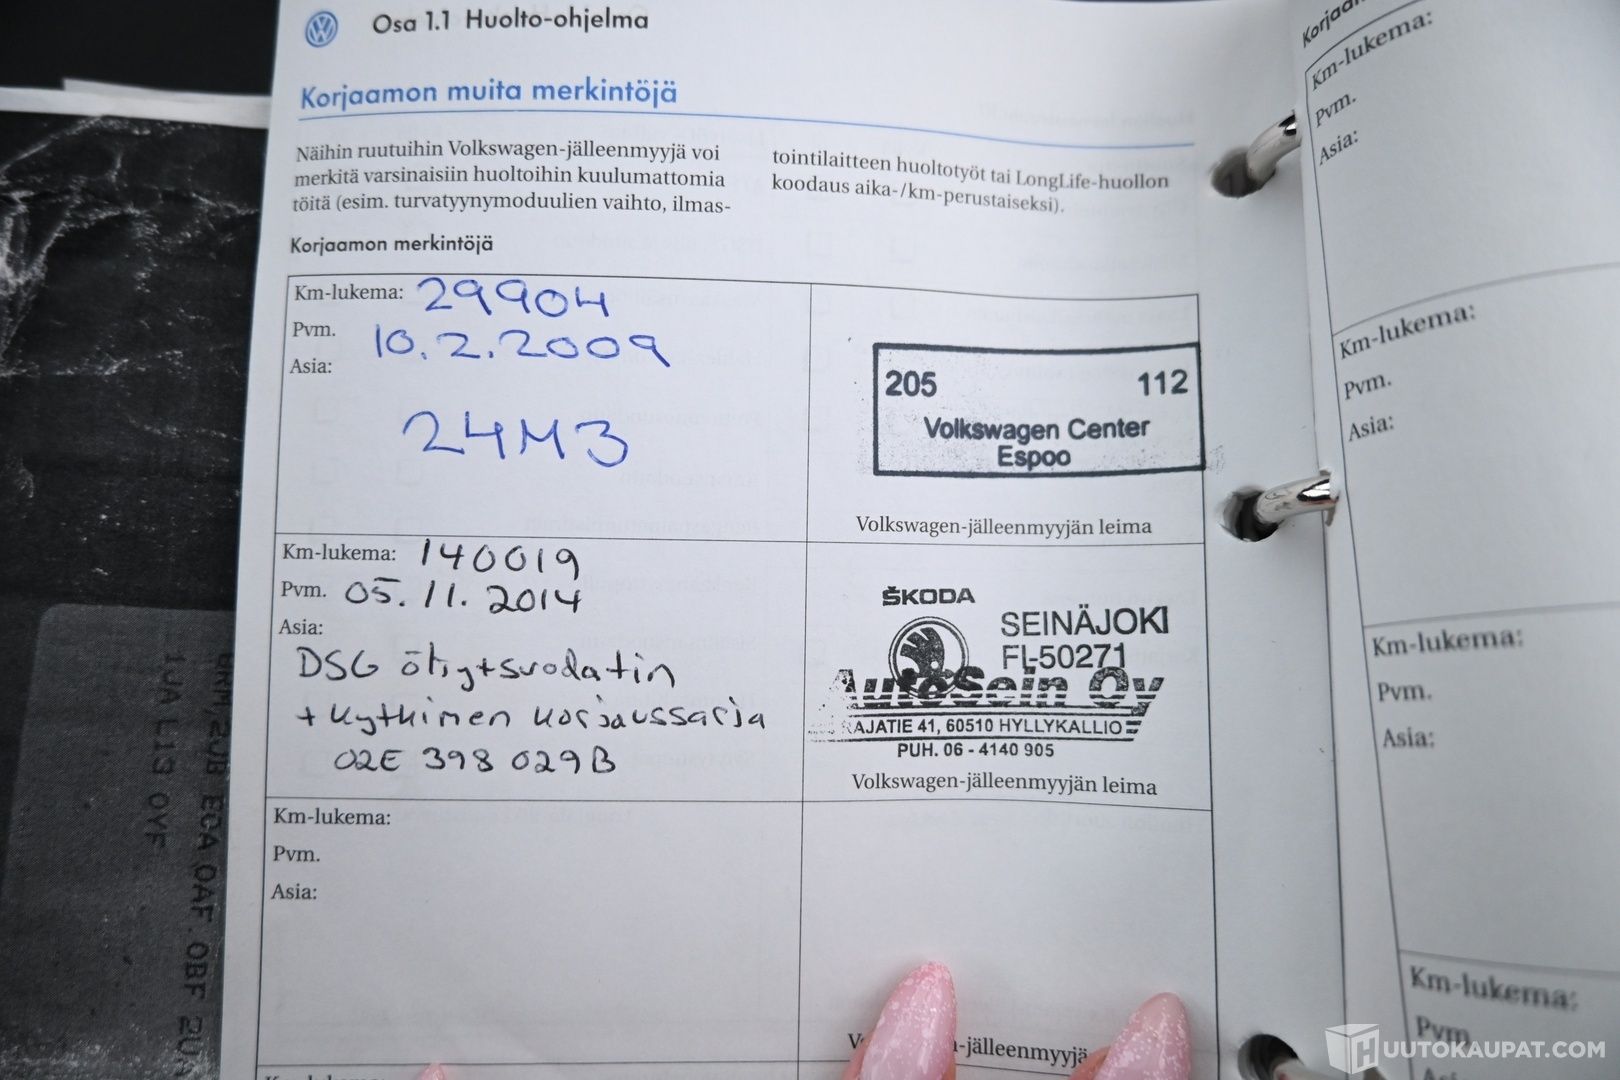 Osa 1.1 Huolto-ohjelma
Korjaamon muita merkintöjä
Näihin ruutuihin Volkswagen-jälleenmyyjä voi
merkitä varsinaisiin huoltoihin kuulumattomia
töitä (esim. turvatyynymoduulien vaihto, ilmas-
tointilaitteen huoltotyöt tai LongLife-huollon
koodaus aika-/km-perustaiseksi).
Korjaamon merkintöjä
Km-lukema: 29904
Pvm. 10.2.2009
Asia:
24M3
205 112
Volkswagen Center
Espoo
Volkswagen-jälleenmyyjän leima
Km-lukema: 140019
Pvm. 05.11.2014
Asia:
DSG öljy+suodatin
+ kytkimen korjaussarja
02E 398 029B
ŠKODA
SEINÄJOKI
FI-50271
AutoSein Oy
RAJATIE 41, 60510 HYLLYKALLIO
PUH. 06 - 4140 905
Volkswagen-jälleenmyyjän leima
Km-lukema:
Pvm.
Asia:
-jälleenmyyjä
Km-lukema:
Pvm.
Asia:
Km-lukema:
Pvm.
Asia:
Km-lukema:
Pvm.
Asia:
Km-lukema:
Pvm.
HUUTOKAUPAT.COM